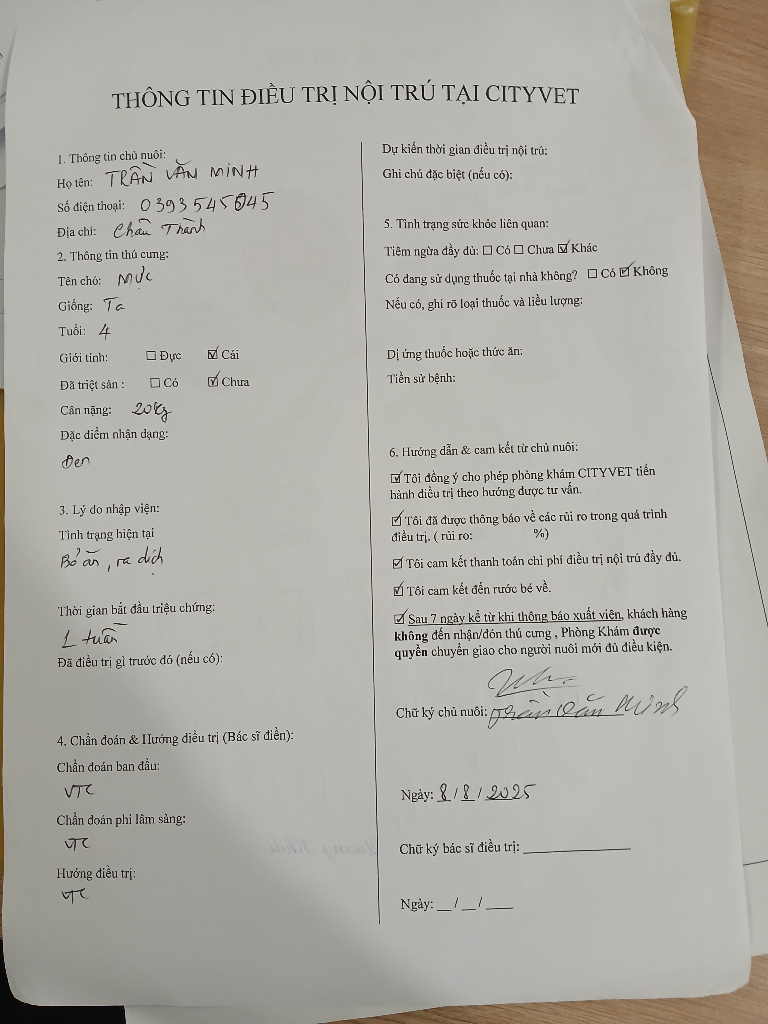 THÔNG TIN ĐIỀU TRỊ NỘI TRÚ TẠI CITYVET
1. Thông tin chủ nuôi:
Họ tên: TRẦN VĂN MINH
Số điện thoại: 0393545045
Địa chỉ: Châu Thành
2. Thông tin thú cưng:
Tên chó: Mực
Giống: Ta
Tuổi: 4
Giới tính: ☐ Đực ☑ Cái
Đã triệt sản : ☐ Có ☑ Chưa
Cân nặng: 20kg
Đặc điểm nhận dạng:
Đen
3. Lý do nhập viện:
Tình trạng hiện tại
Bỏ ăn, ra dịch
Thời gian bắt đầu triệu chứng:
1 tuần
Đã điều trị gì trước đó (nếu có):
4. Chẩn đoán & Hướng điều trị (Bác sĩ điền):
Chẩn đoán ban đầu:
VTC
Chẩn đoán phi lâm sàng:
VTC
Hướng điều trị:
VTC
Dự kiến thời gian điều trị nội trú:
Ghi chú đặc biệt (nếu có):
5. Tình trạng sức khỏe liên quan:
Tiêm ngừa đầy đủ: ☐ Có ☐ Chưa ☑ Khác
Có đang sử dụng thuốc tại nhà không? ☐ Có ☑ Không
Nếu có, ghi rõ loại thuốc và liều lượng:
Dị ứng thuốc hoặc thức ăn:
Tiền sử bệnh:
6. Hướng dẫn & cam kết từ chủ nuôi:
☑ Tôi đồng ý cho phép phòng khám CITYVET tiến
hành điều trị theo hướng được tư vấn.
☑ Tôi đã được thông báo về các rủi ro trong quá trình
điều trị. ( rủi ro: %)
☑ Tôi cam kết thanh toán chi phí điều trị nội trú đầy đủ.
☑ Tôi cam kết đến rước bé về.
☑ Sau 7 ngày kể từ khi thông báo xuất viện, khách hàng
không đến nhận/đón thú cưng , Phòng Khám được
quyền chuyển giao cho người nuôi mới đủ điều kiện.
Chữ ký chủ nuôi: Trần Văn Minh
Ngày: 8/8/2025
Chữ ký bác sĩ điều trị: ____________
Ngày: __/__/____